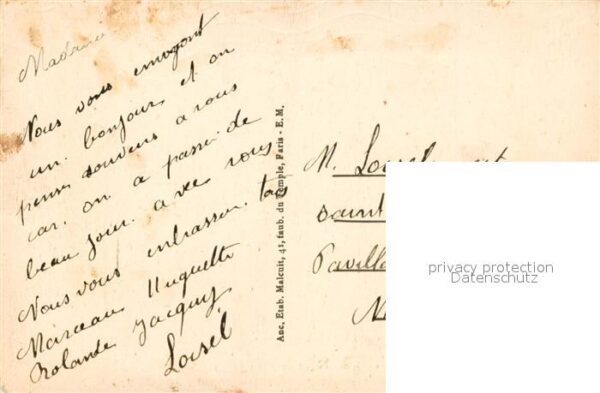 Madame
Nous vous envoyont
un bonjour et on
pense souvens a vous
car on a passe de
beau jour avec vous
Nous vous embrasson tous
Marceau Huguette
Rolande Jacquy
Loisel
Anc. Etab. Malcuit, 41, faub. du Temple, Paris - E. M.
M. Loisel et
saint
Pavill
privacy protection
Datenschutz